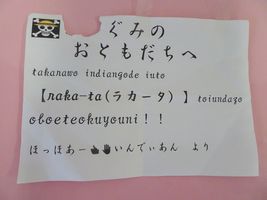 ぐみの
おともだちへ
takanawo indiangode iuto
【naka-ta(ラカータ)】toiundazo
oboeteokuyouni！！
ほっほあー👆👋いんでぃあん より